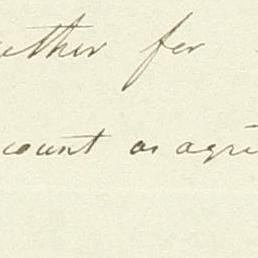 ether for
count as agre